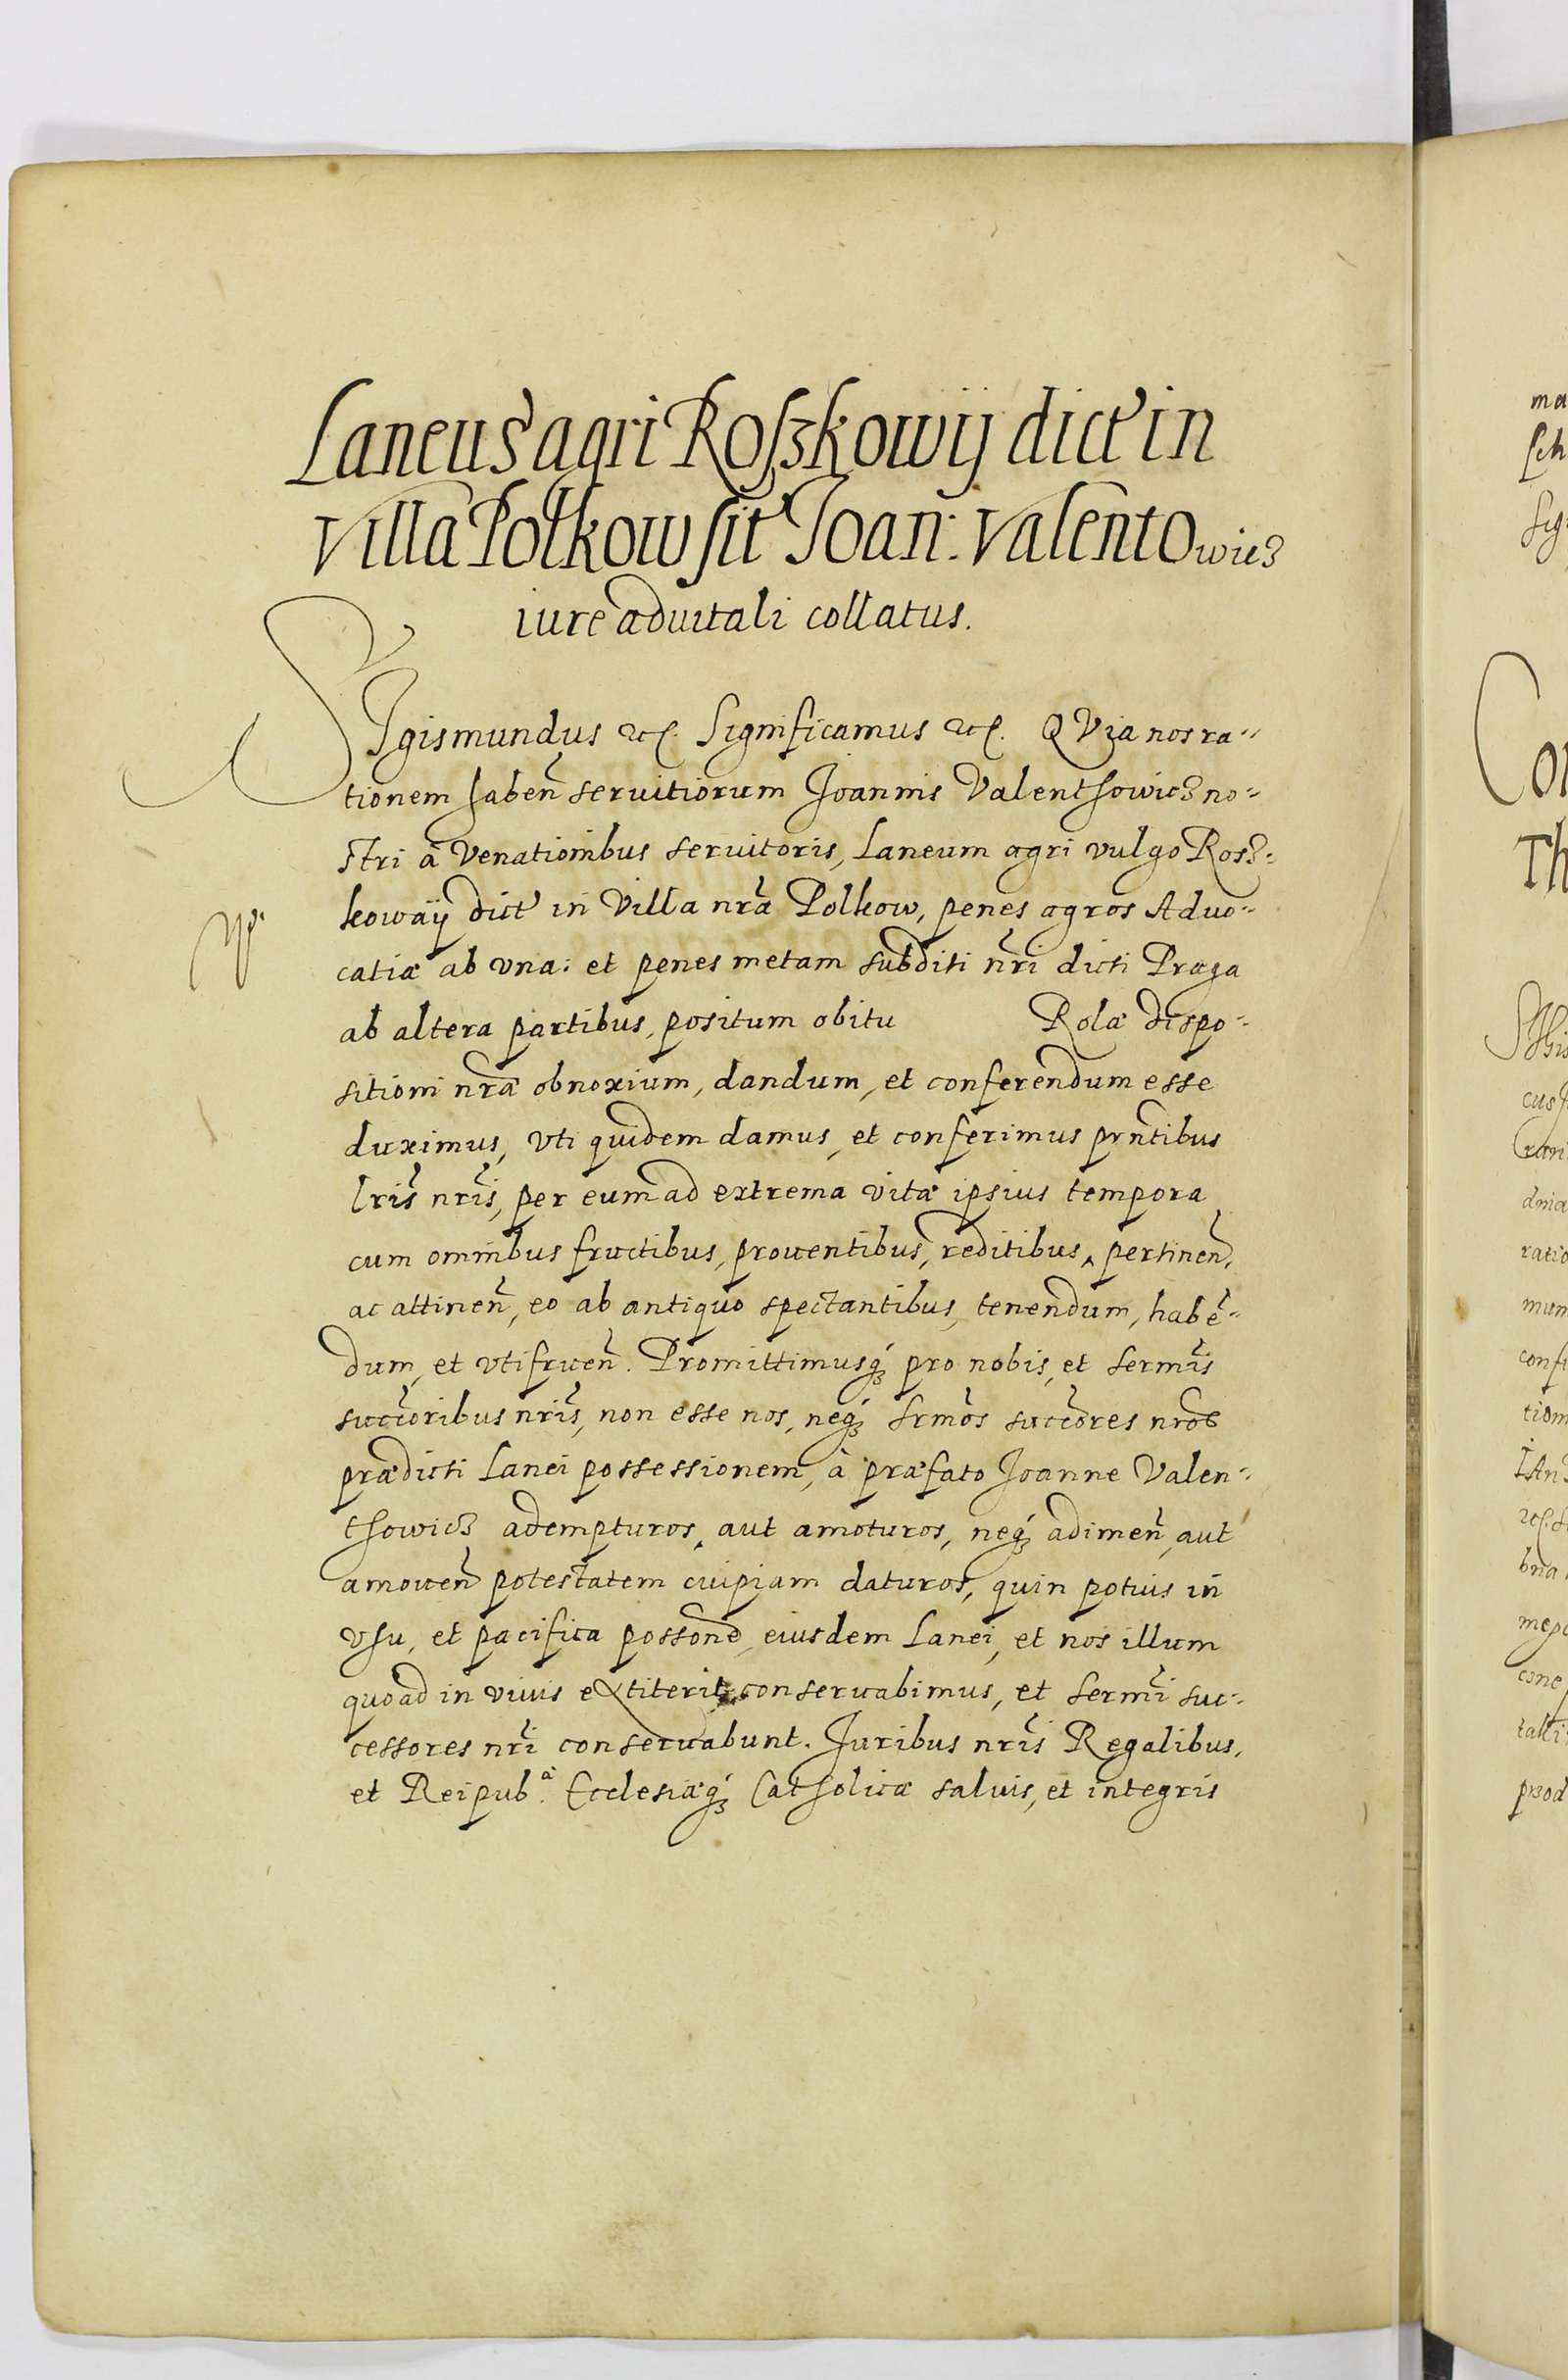 Laneus agri Roszkowij dict in
villa Polkow sit Joan: Valentowicz
iure aduitali collatus.
SIgismundus etc. Significamus etc. QVia nos ra-
tionem haben̄ seruitiorum Joannis Valenthowicz no-
stri a Venationibus seruitoris, Laneum agri vulgo Rosz-
kowaÿ dict in Villa nr̄a Polkow, penes agros Aduo-
catiæ ab vna: et penes metam subditi nr̄i dicti Praga
ab altera partibus, positum obitu Rolæ dispo-
sitioni nr̄æ obnoxium, dandum, et conferendum esse
duximus, vti quidem damus, et conferimus prn̄tibus
lris̄ nris̄, per eum ad extrema vitæ ipsius tempora
cum omnibus fructibus, prouentibus, reditibus, pertinen̄,
ac attinen̄, eo ab antiquo spectantibus, tenendum, habē-
dum, et vtifruen̄. Promittimusq́ꝫ pro nobis, et Sermīs
succ̄oribus nris̄, non esse nos, neq́ꝫ Srmōs succ̄ores nrōs
prædicti Lanei possessionem, à præfato Joanne Valen-
thowicz adempturos, aut amoturos, neq́ꝫ adimen̄, aut
amouen̄ potestatem cuipiam daturos, quin potius in
vsu, et pacifica possōne eiusdem Lanei, et nos illum
quoad in viuis extiterit conseruabimus, et Sermī suc-
cessores nrī conseruabunt. Juribus nrīs Regalibus,
et Reipub.ᵃ̀ Ecclesiæq́ꝫ Catholicæ saluis, et integris